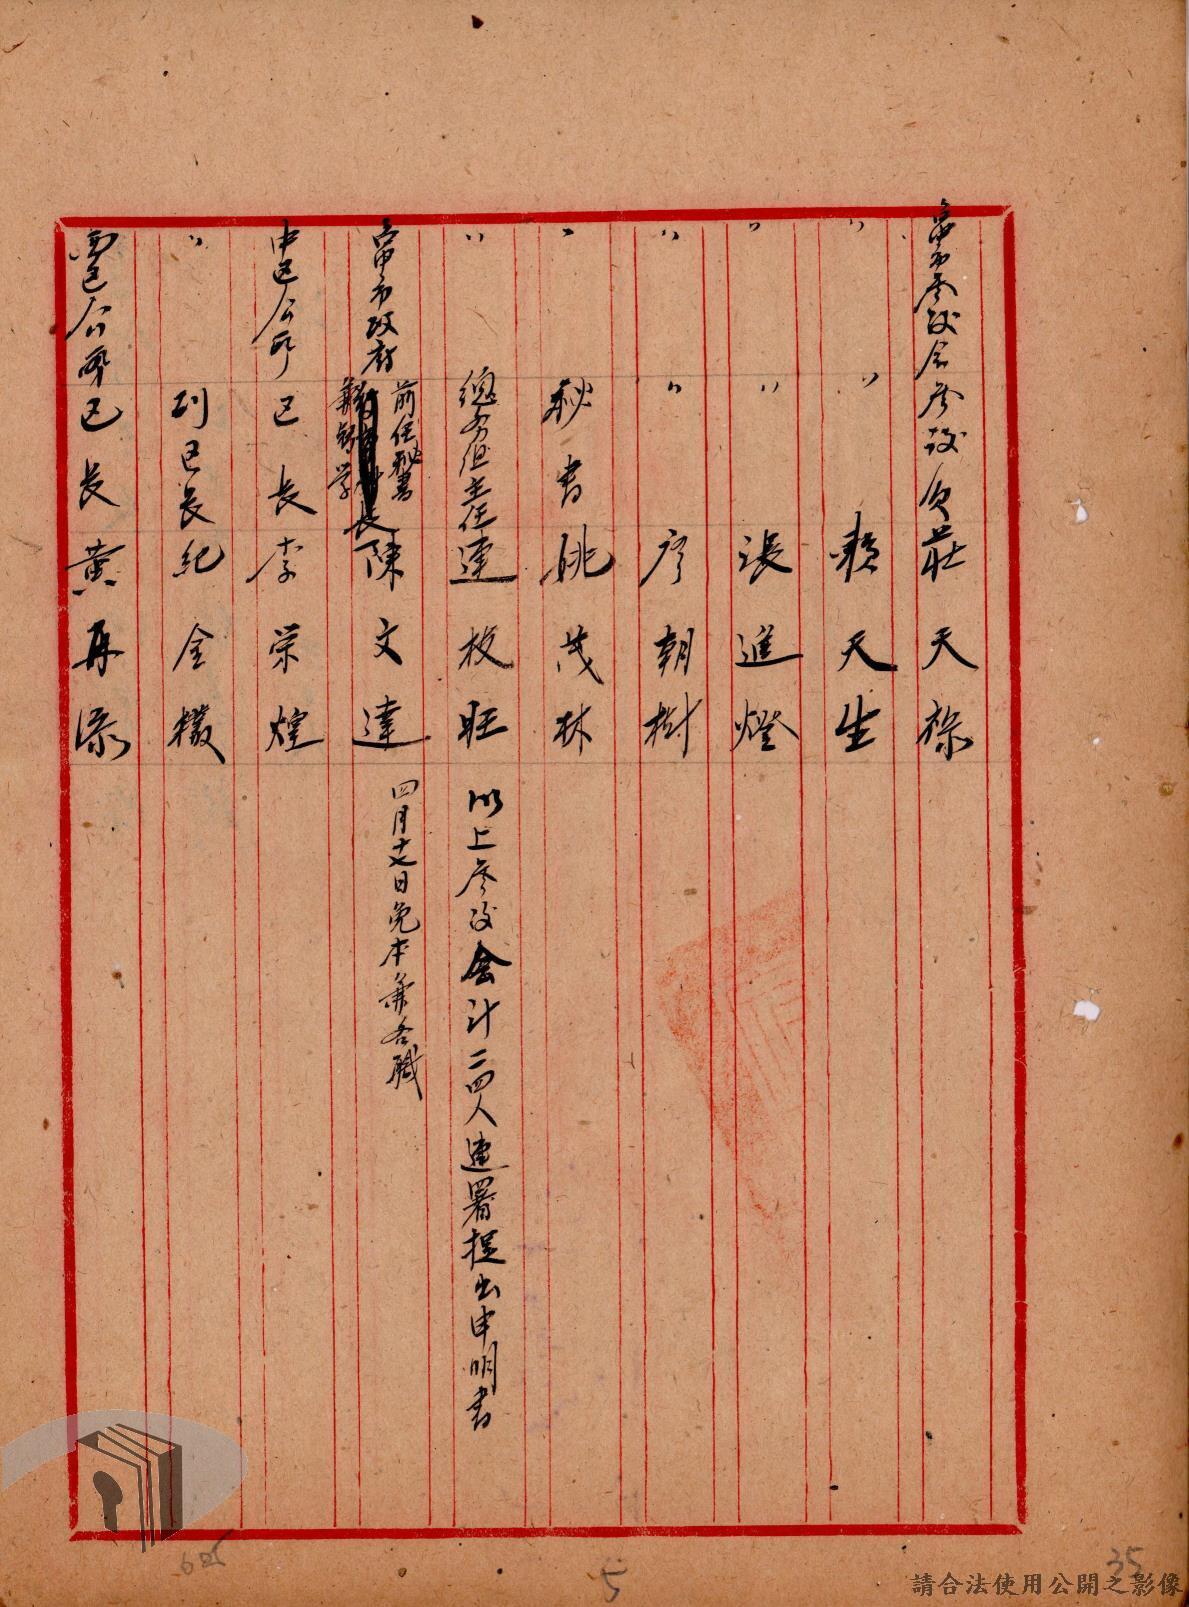 臺中市參議会參議員莊天祿
〃 〃 賴天生
〃 〃 張進燈
〃 〃 廖朝樹
〃 秘書姚茂林
〃 總務組主任連枝旺 以上參議会計二四人連署提出申明書
臺中市政府 前任秘書 兼 長 陳文達 四月十七日免本兼各職
中区公所区長李荣煌
〃 副区長紀金
西区公所区長黃再添
5
35
請合法使用公開之影像